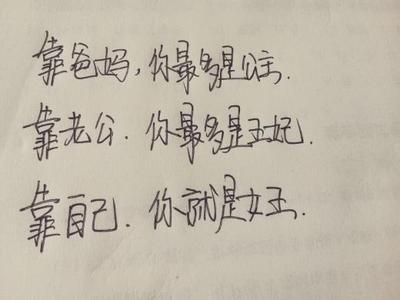 靠爸妈,你最多是公主.
靠老公.你最多是王妃.
靠自己.你就是女王.